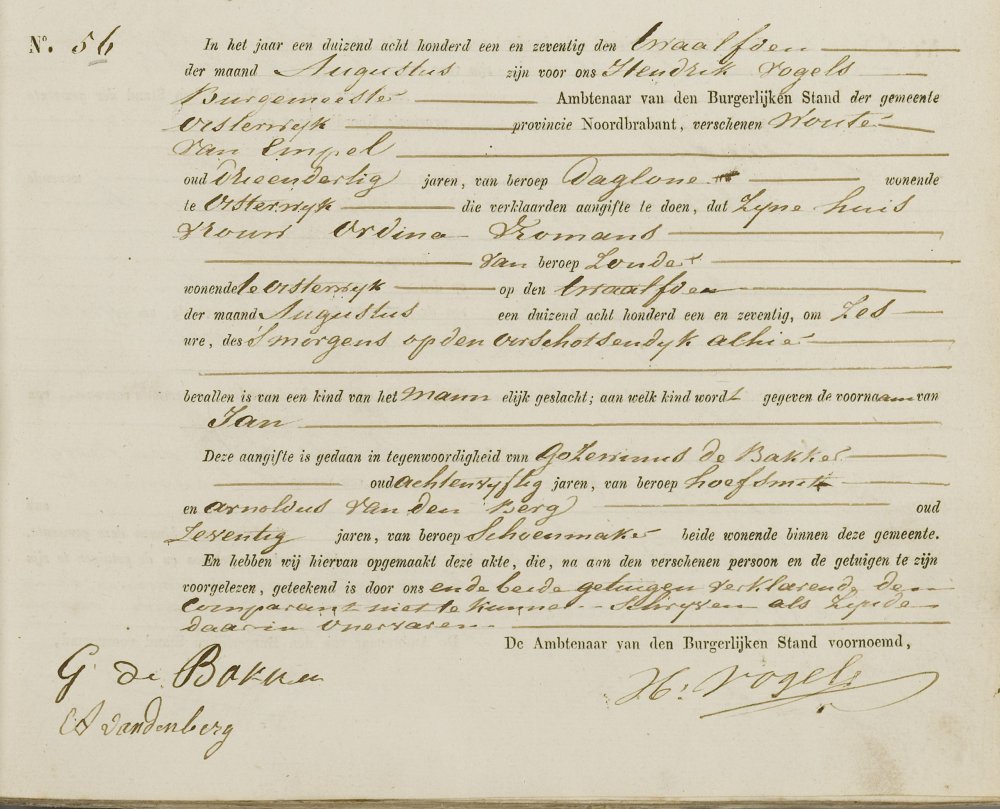 No. 56
In het jaar een duizend acht honderd een en zeventig den twaalfden
der maand Augustus zijn voor ons Hendrik Vogels
Burgemeester Ambtenaar van den Burgerlijken Stand der gemeente
Oisterwijk provincie Noordbrabant, verschenen Wouter
van Empel
oud drieendertig jaren, van beroep Dagloner wonende
te Oisterwijk die verklaarden aangifte te doen, dat Zyne huis
vrouw Ordina Romans
van beroep Zonder
wonende te Oisterwijk op den twaalfden
der maand Augustus een duizend acht honderd een en zeventig, om Zes
ure, des Smorgens op den alhier
bevallen is van een kind van het mann elijk geslacht; aan welk kind wordt gegeven de voornaam van
Jan
Deze aangifte is gedaan in tegenwoordigheid vnn Gozewinus de Bakker
oud achtenvyftig jaren, van beroep hoefsmit
en Arnoldus van den Berg oud
Zeventig jaren, van beroep Schoenmaker beide wonende binnen deze gemeente.
En hebben wij hiervan opgemaakt deze akte, die, na aan den verschenen persoon en de getuigen te zijn
voorgelezen, geteekend is door ons en de beide getuigen verklarende de
comparant niet te kunnen Schryven als Zynde
daarin onervaren.
De Ambtenaar van den Burgerlijken Stand voornoemd,
G de Bakker
H. Vogels
A vandenberg